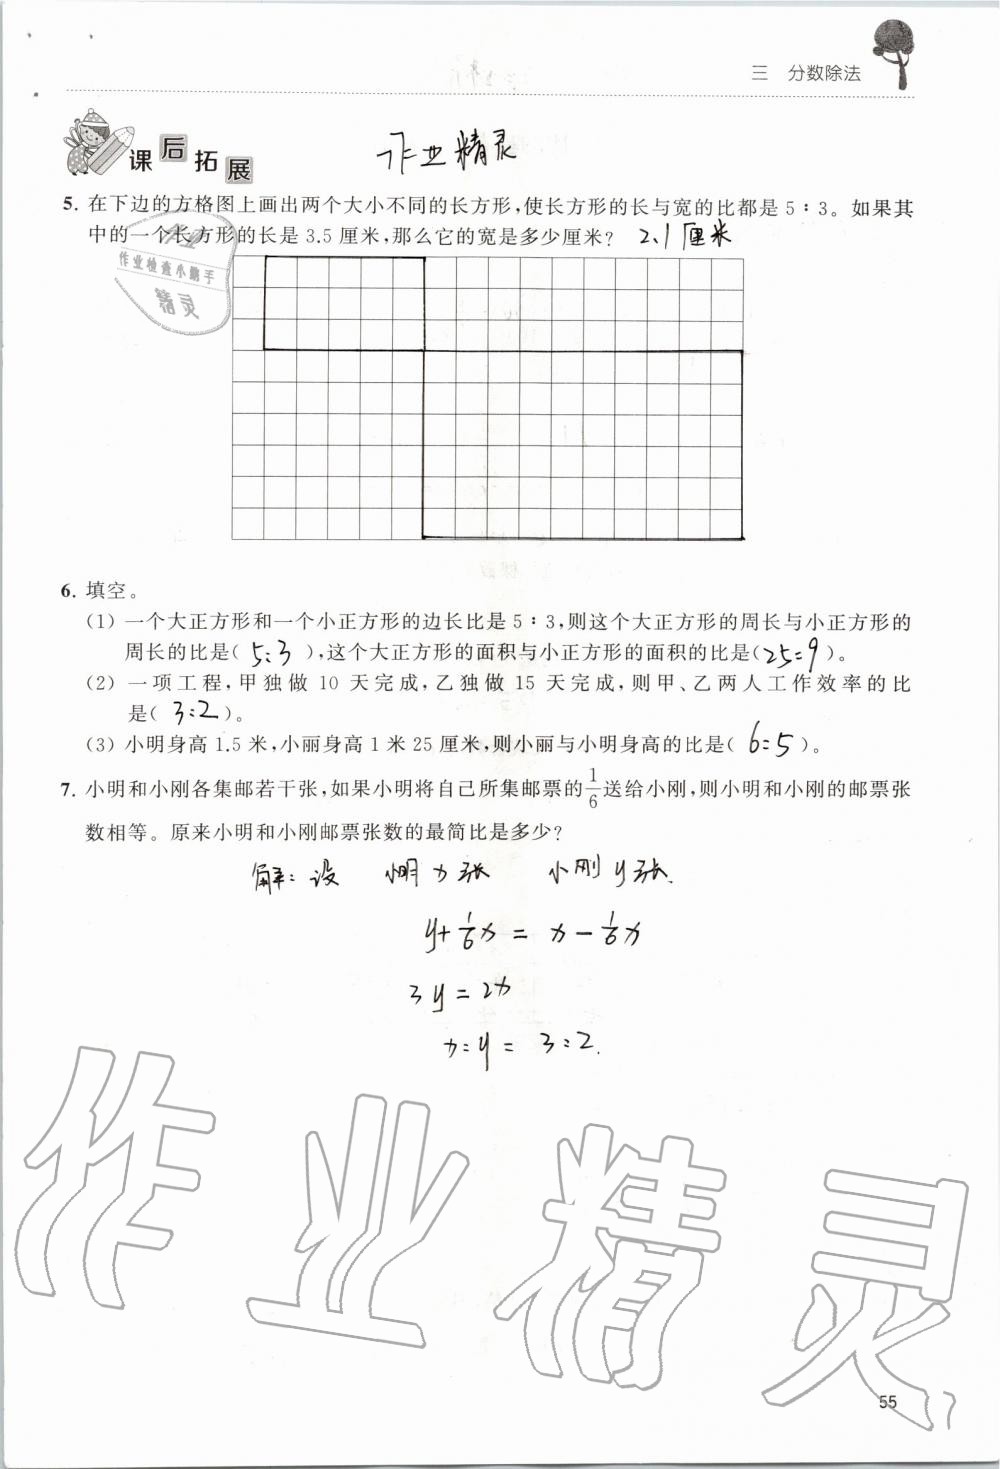 三 分数除法
课后拓展
作业精灵
5. 在下边的方格图上画出两个大小不同的长方形,使长方形的长与宽的比都是 5∶3。如果其
中的一个长方形的长是 3.5 厘米,那么它的宽是多少厘米? 2.1厘米
作业
作业检查小助手
精灵
6. 填空。
(1) 一个大正方形和一个小正方形的边长比是 5∶3,则这个大正方形的周长与小正方形的
周长的比是( 5:3 ),这个大正方形的面积与小正方形的面积的比是(25:9)。
(2) 一项工程,甲独做 10 天完成,乙独做 15 天完成,则甲、乙两人工作效率的比
是( 3:2 )。
(3) 小明身高 1.5 米,小丽身高 1 米 25 厘米,则小丽与小明身高的比是( 6:5 )。
7. 小明和小刚各集邮若干张,如果小明将自己所集邮票的1/6送给小刚,则小明和小刚的邮票张
数相等。原来小明和小刚邮票张数的最简比是多少?
解:设 小明 x 张 小刚 y 张.
y+1/6x = x-1/6x
3y=2x
x:y = 3:2.
作业精灵
55